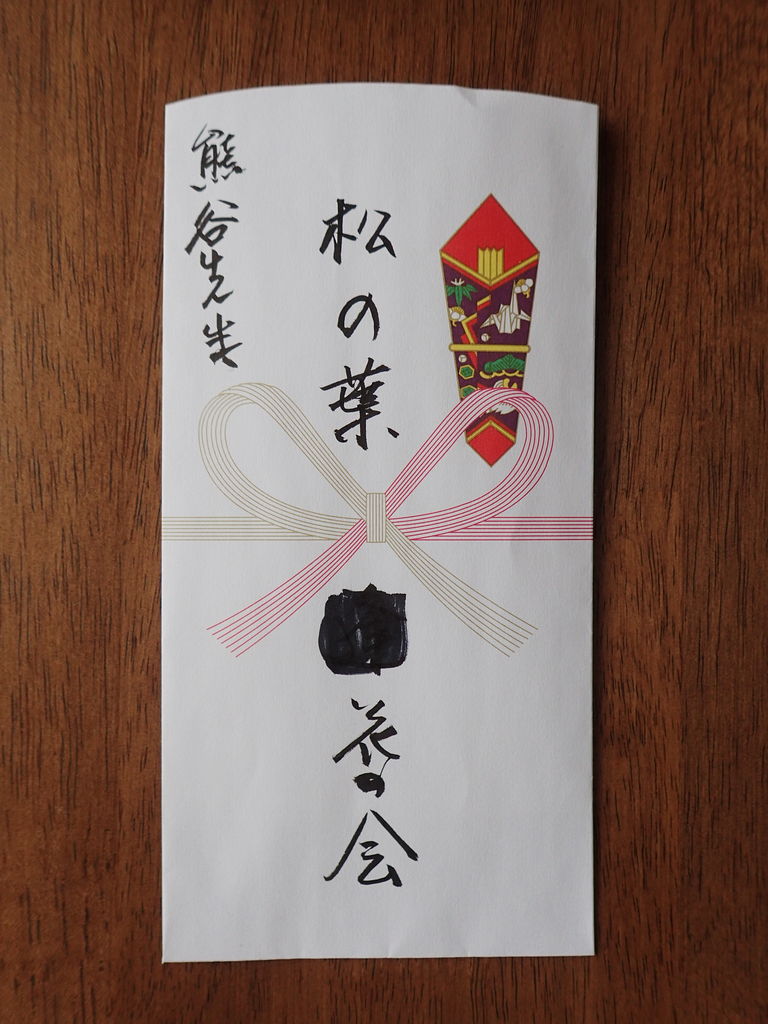 松の葉
花の会
熊谷先生